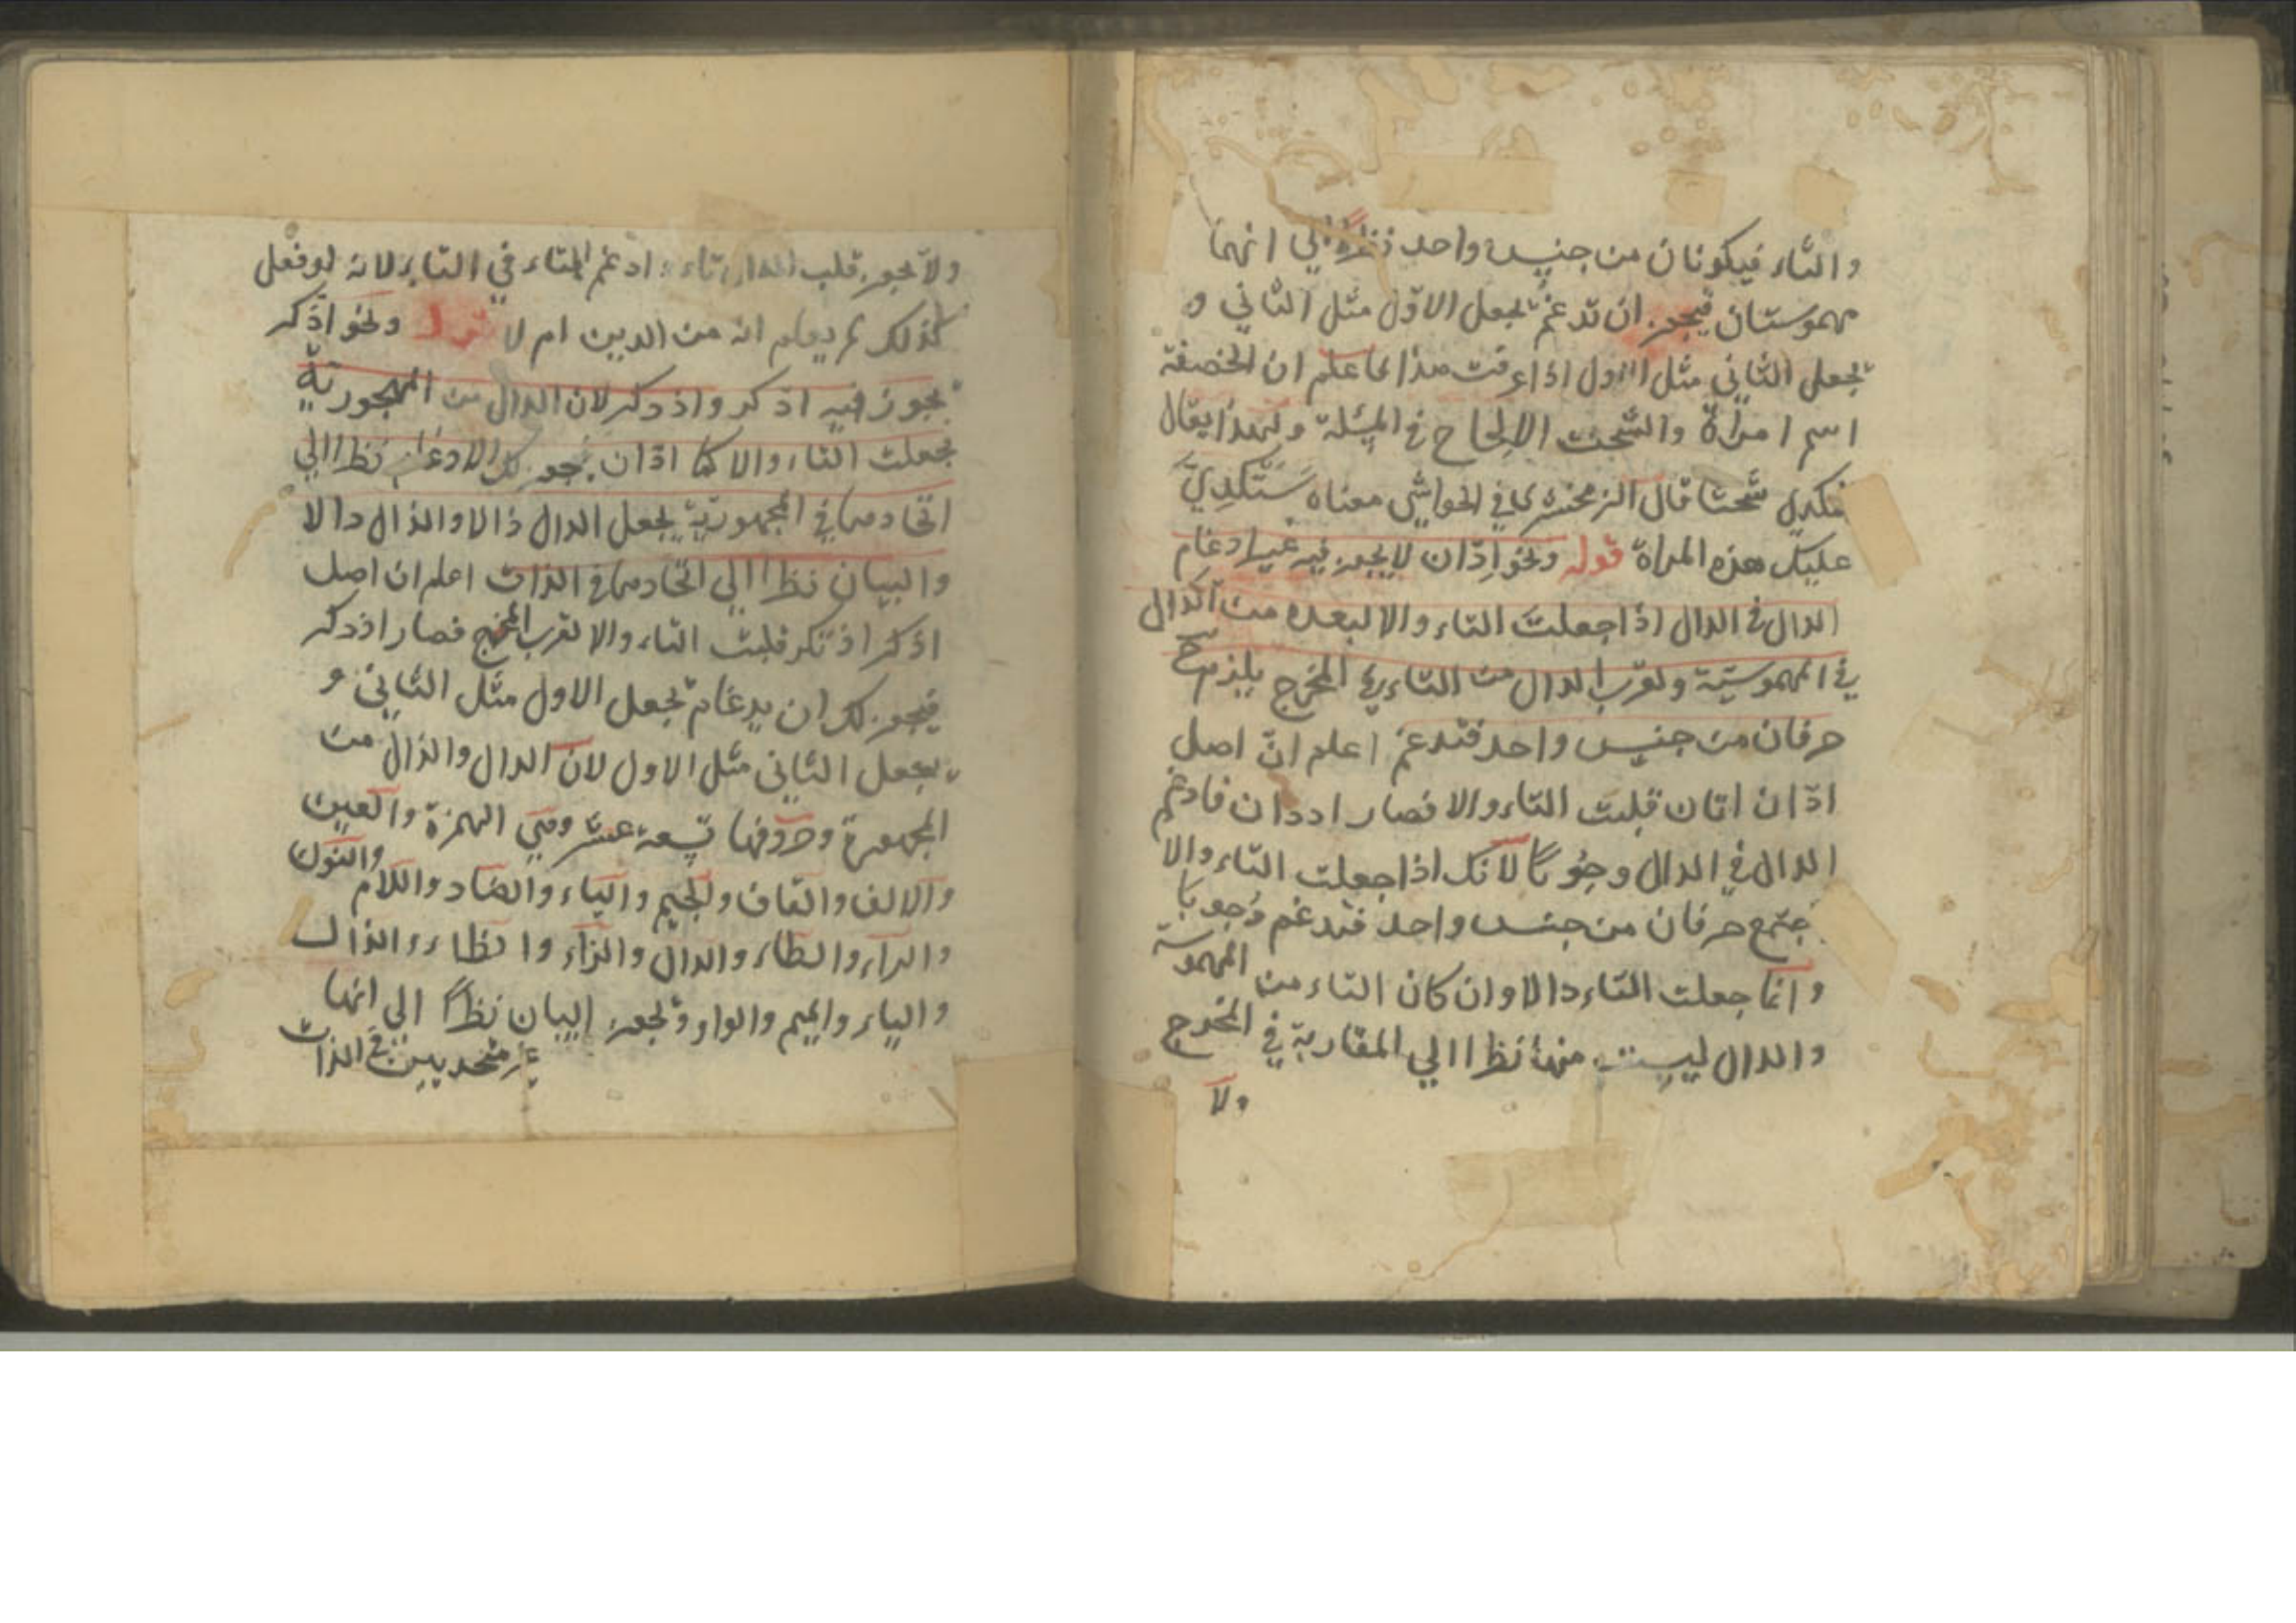 والتاء فيكونان من جنس واحد نظرًا الي انهما
مهموستان فيجوز ان تدغم بجعل الاوّل مثل الثاني و
بجعل الثاني مثل الاول اذا عرفت هذا فاعلم ان الخصفة
اسم امراة والشحث الالحاح في المسئلة ولهذا يقال
شحتا قال الزمخشري في الحواشي معناه ستكدي
عليك هذه المراة قوله ونحو ادّان لا يجوز فيه غير ادغام
الدال في الدال اذا جعلت التاء دالا لبعده من الدال
في المهموسيّة ولقرب الدال من التاء في المخرج يلزم ح
حرفان من جنس واحد فتدغم اعلم انّ اصل
ادّان اتان قلبت التاء دالا فصار اددان فادغم
الدال في الدال وجوبًا لانك اذا جعلت التاء دالا
جتمع حرفان من جنس واحد فتدغم وجوبا
وانما جعلت التاء دالا وان كان التاء من المهموسة
والدال ليست منها نظرا الي المقاربة في المخرج
ولا
ولا يجوز قلب الدال تاء ادغم التاء في التاء لانه لو فعل
كذلك لم يعلم انه من الدين ام لا ونحو اذكر
يجوز فيه اذكر واذدكر لان الدال من المهجوريّة
بجعلت التاء دالا كما ادّان يجوز لك الادغام نظرا الي
اتحادهما في المجهوريّة بجعل الدال ذالا والذال دالا
والبيان نظرا الي اتحادهما في الذات اعلم ان اصل
اذكر اذتكر قلبت التاء دالا لقرب المخرج فصار اذدكر
فيجوز لك ان يدغام بجعل الاول مثل الثاني و
بجعل الثاني مثل الاول لان الدال والذال من
المجهورة وحروفها تسعة عشر وهي الهمزة والعين
والالف والقاف والجيم والياء والضاد واللام والنون
والراء والطاء والدال والزاء والظاء والذال
والباء والميم والواو ويجوز البيان نظرًا الي انهما
غير متحديين في الذات